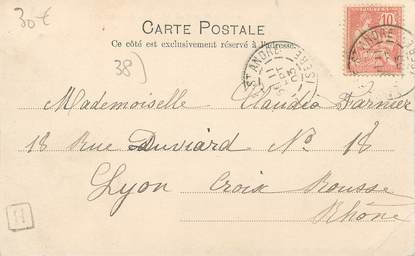 30€
CARTE POSTALE
Ce côté est exclusivement réservé à l'adresse.
10
38)
ST ANDRE
ISERE
Mademoiselle Claudia Farnier
18 Rue Duviard No 18
Lyon Croix Rousse
Rhône
H